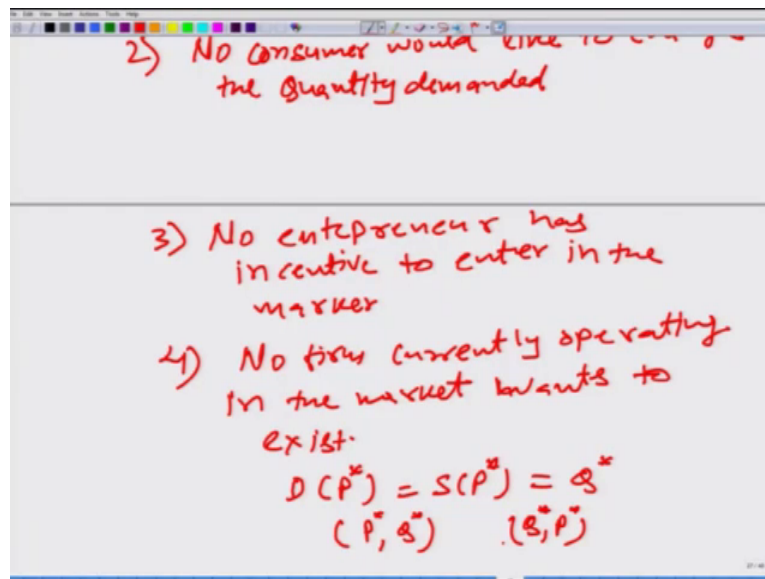 2) No consumer would like to
the Quantity demanded
3) No entepreneur has
incentive to enter in the
marker
4) No firm currently operating
in the market wants to
exist.
D(P*) = S(P*) = Q*
(P*, Q*) (Q*, P*)